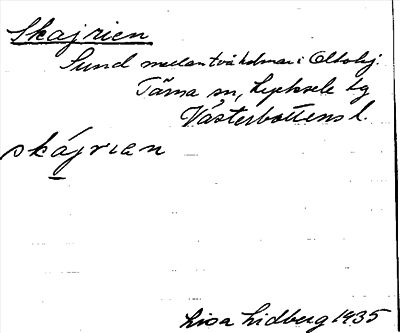 Skajrien
Sund mellan två holmar i
Tärna sn, Lycksele lg
Västerbottens l.
skájrien
Lisa Lidberg 1935